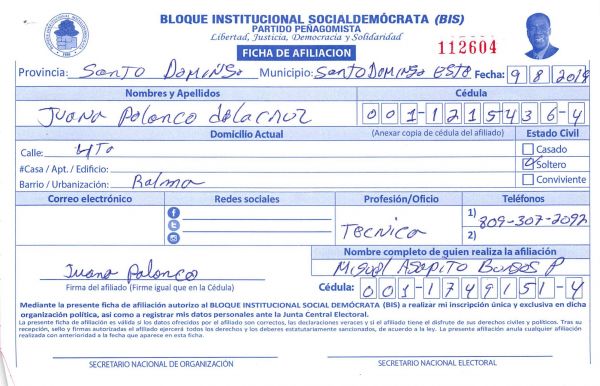 BLOQUE INSTITUCIONAL SOCIALDEMÓCRATA (BIS)
PARTIDO PEÑAGOMISTA
Libertad, Justicia, Democracia y Solidaridad
FICHA DE AFILIACION
112604
Provincia: Santo Domingo Municipio: Santo Domingo Este Fecha: 9 8 2019
Nombres y Apellidos Cédula
Juana Polanco de la cruz 001-1215436-4
Domicilio Actual (Anexar copia de cédula del afiliado) Estado Civil
Calle: 4ta Casado
#Casa / Apt. / Edificio: Soltero
Barrio / Urbanización: Ralma Conviviente
Correo electrónico Redes sociales Profesión/Oficio Teléfonos
Tecnica 1) 809-307-2092
2)
Nombre completo de quien realiza la afiliación
Juana Polanco Miguel Agapito Burgos P
Firma del afiliado (Firme igual que en la Cédula) Cédula: 001-1749151-4
Mediante la presente ficha de afiliación autorizo al BLOQUE INSTITUCIONAL SOCIAL DEMÓCRATA (BIS) a realizar mi inscripción única y exclusiva en dicha
organización política, así como a registrar mis datos personales ante la Junta Central Electoral.
La presente ficha de afiliación es valida si los datos ofrecidos por el afiliado son correctos, las declaraciones veraces y si el afiliado tiene el disfrute de sus derechos civiles y políticos. Tras su
recepción, sello y firmas autorizadas el afiliado ejercerá todos los derechos y los deberes estatutariamente sancionados, de acuerdo a la ley. La presente afiliación anula cualquier afiliación
realizada con anterioridad a la fecha que aparece en esta ficha.
SECRETARIO NACIONAL DE ORGANIZACIÓN SECRETARIO NACIONAL ELECTORAL